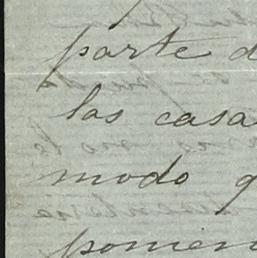 parte d
las casa
modo q
pomen